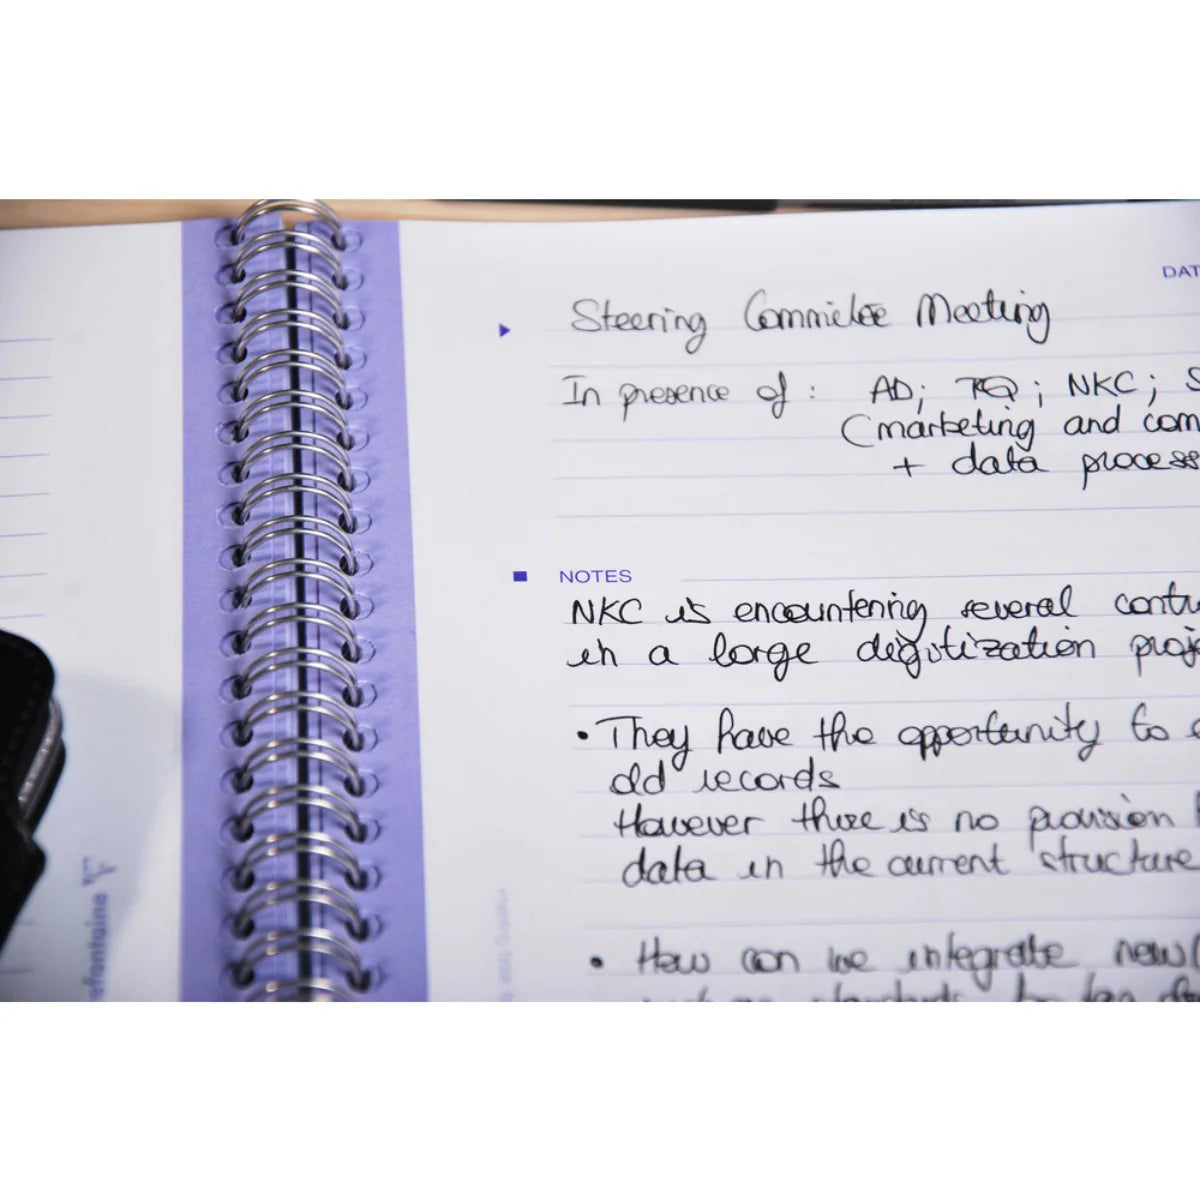 DAT
Steering Committee Meeting
In presence of : AD; TQ; NKC; S
(marketing and com
+ data processe
NOTES
NKC is encountering several contr
in a large digitization proje
• They have the opportunity to
old records
However there is no provision
data in the current structure
• How can we integrate new
efontaine